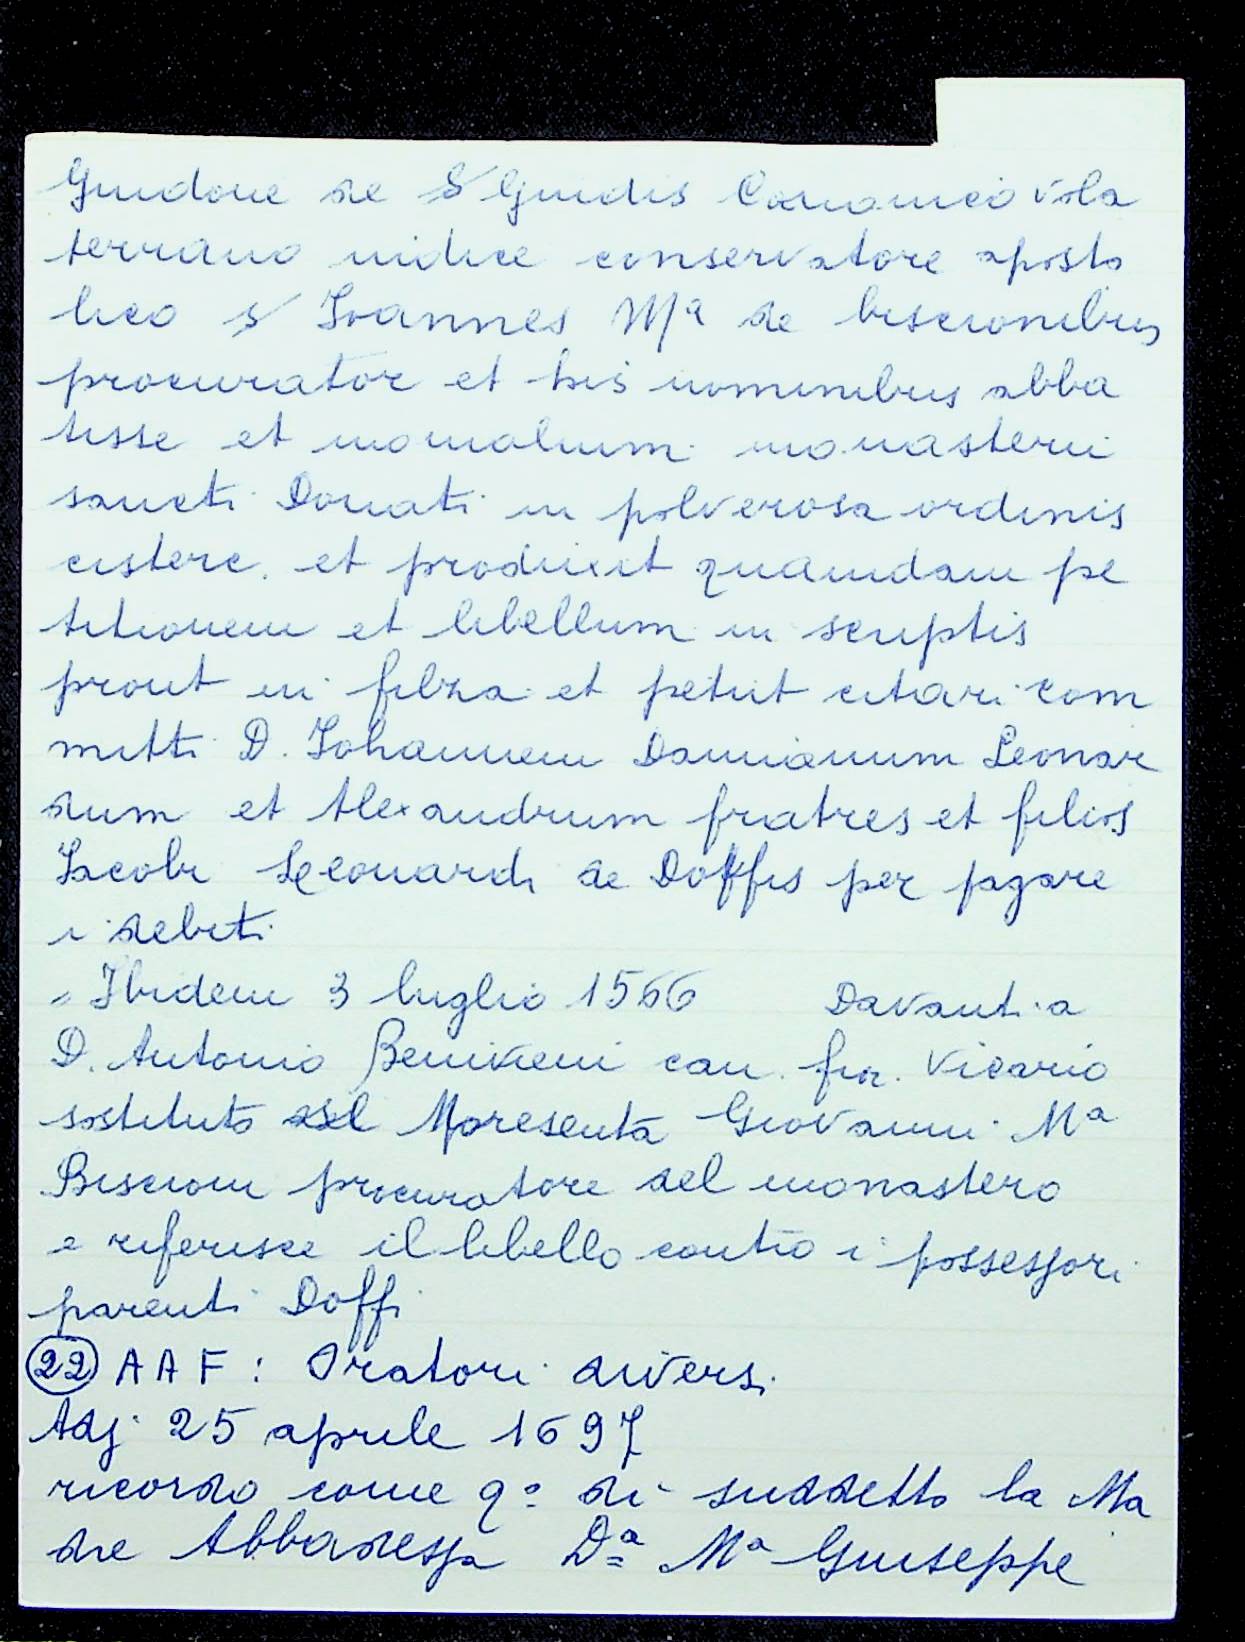 Guidone de S Guidis Canonico vola
terrano iudice conservatore aposto
lico s Ioannes Mª de biscionibus
procurator et his nominibus abba
tisse et monialium monasterii
sancti Donati in polverosa ordinis
cisterc. et produixit quamdam pe
titionem et libellum in scriptis
prout in filza et petiit citari com
mitti D. Johannem Damianum Leonar
dum et Alexandrum fratres et filios
Iacobi Leonardi de Doffis per pagare
i debiti
" Ibidem 3 luglio 1566 Davanti a
D. Antonio Benivieni can. fior. Vicario
sostituto del presenta Giovanni Mª
Biscioni procuratore del monastero
e riferisce il libello contro i possessori
parenti Doffi
22 AAF: Oratori diversi
Adj 25 aprile 1697
ricordo come qº di suddetto la Ma
dre Abbadessa Dª Mª Giuseppe